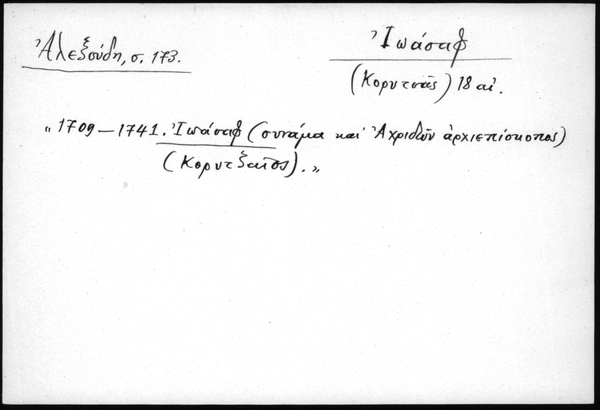 Ἀλεξούδη, σ. 173.
Ἰωάσαφ
(Κορυτσᾶς) 18 αἰ.
„ 1709 – 1741. Ἰωάσαφ (συνάμα καὶ Ἀχριδῶν ἀρχιεπίσκοπος)
(Κορυτξαῖος). „